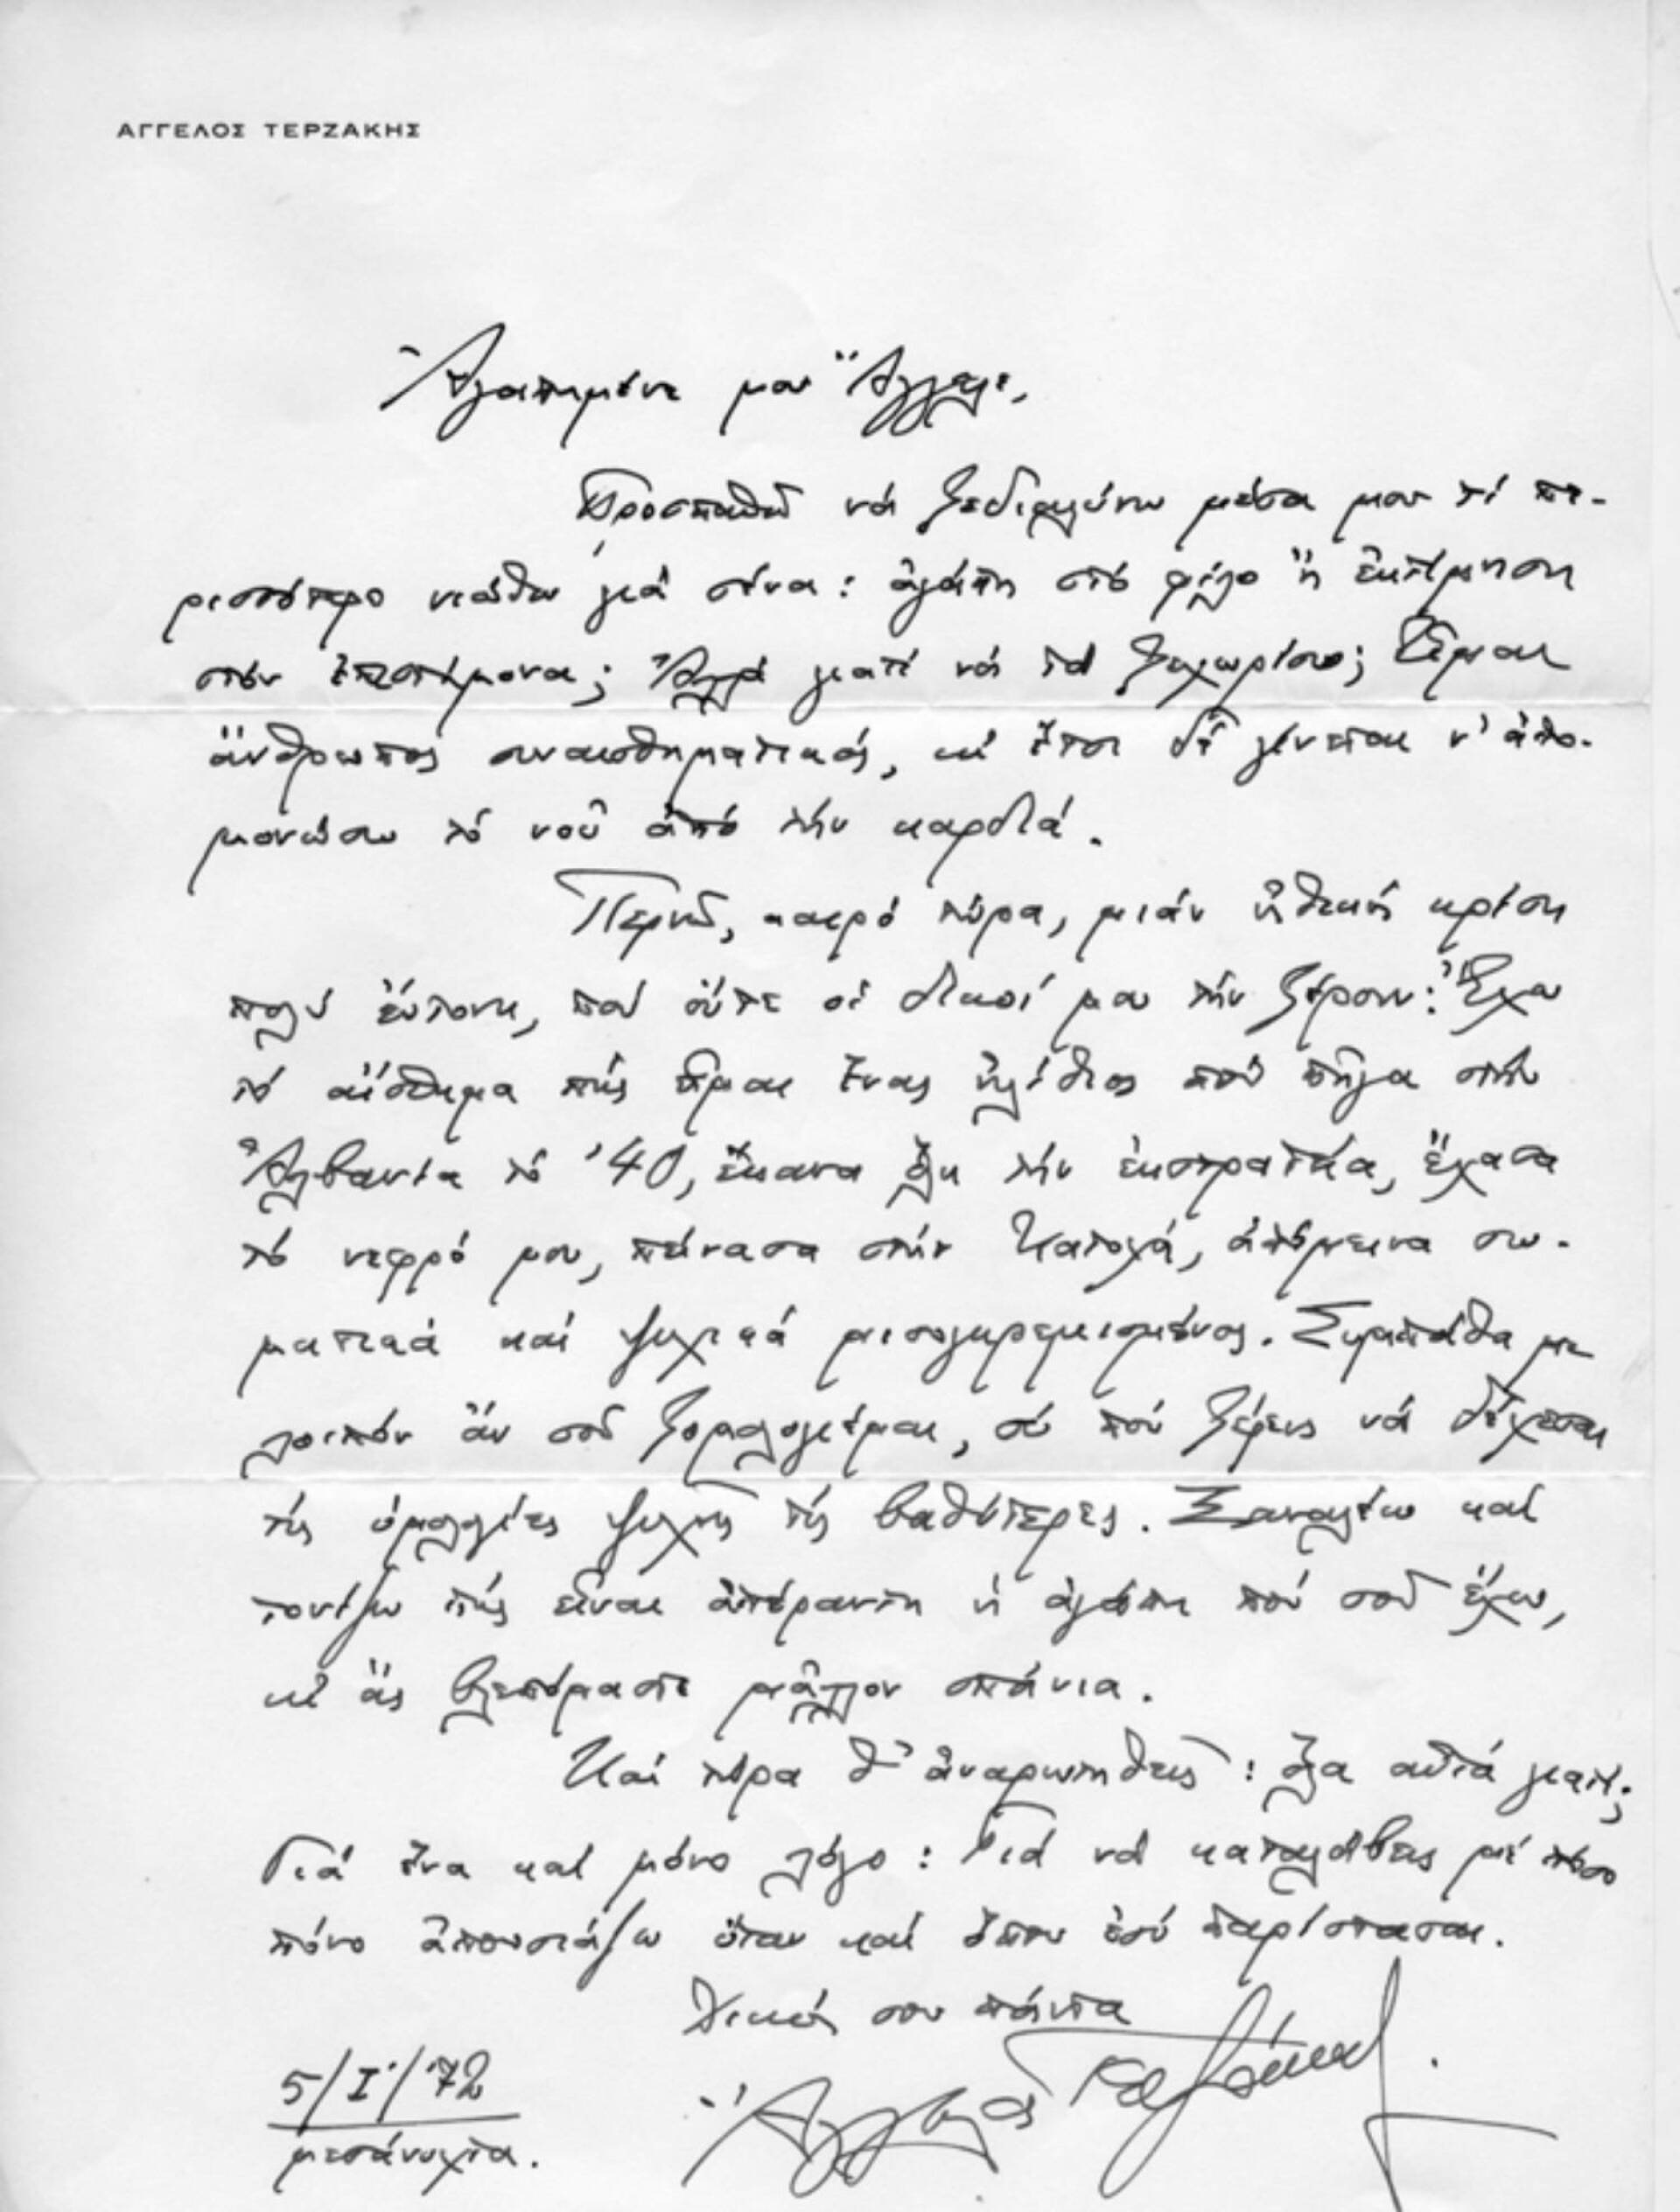 ΑΓΓΕΛΟΣ ΤΕΡΖΑΚΗΣ
Ἀγαπημένε μου Ἄγγελε,
Προσπαθῶ νά ξεδιαλύνω μέσα μου τί πε-
ρισσότερο νιώθω γιά σένα: ἀγάπη στό φίλο ἤ ἐκτίμηση
στόν ἐπιστήμονα; Ἀλλά γιατί νά τά ξεχωρίσω; Εἶμαι
ἄνθρωπος συναισθηματικός, κι' ἔτσι δέ γίνεται ν' ἀπο-
μονώσω τό νοῦ ἀπό τήν καρδιά.
Περνῶ, καιρό τώρα, μιάν ἠθική κρίση
πολύ ἔντονη, πού οὔτε οἱ δικοί μου τήν ξέρουν: Ἔχω
τό αἴσθημα πώς εἶμαι ἕνας ἠλίθιος πού πῆγα στήν
Ἀλβανία τό '40, ἔκανα ὅλη τήν ἐκστρατεία, ἔχασα
τό νεφρό μου, πείνασα στήν Κατοχή, ἀπόμεινα σω-
ματικά καί ψυχικά μισογκρεμισμένος. Συμπάθα με
λοιπόν ἄν σοῦ ξομολογιέμαι, σέ πού ξέρεις νά δέχεσαι
τίς ὁμολογίες ψυχῆς τίς βαθύτερες. Ξαναλέω καί
τονίζω πώς εἶναι ἀπέραντη ἡ ἀγάπη πού σοῦ ἔχω,
κι' ἄς βλεπόμαστε μᾶλλον σπάνια.
Καί τώρα θ' ἀναρωτηθεῖς: ὅλα αὐτά γιατί;
Γιά ἕνα καί μόνο λόγο: Γιά νά καταλάβεις μέ πόσο
πόνο ἀπουσιάζω ὅταν καί ὅπου ἐσύ παρίστασαι.
Δικός σου πάντα
Ἄγγελος Τερζάκης.
5/I/'72
μεσάνυχτα.